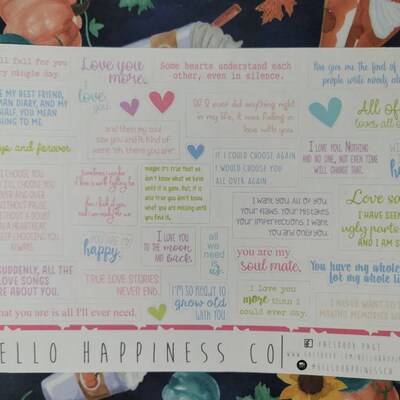 ll fall for you
ry single day.
Love you
more.
Some hearts understand each
other, even in silence.
You give me the kind of
people write novels ab
E MY BEST FRIEND,
MAN DIARY, AND MY
HALF, YOU MEAN
HING TO ME.
love
you.
and then my soul
saw you and it kind of
went "oh there you are".
If I ever did anything right
in my life, it was falling in
love with you.
All of
loves all o
ys and forever
maybe it's true that we
don't know what we have
until it is gone. But, it is
also true you don't know
what you are missing until
you find it.
IF I COULD CHOOSE AGAIN
I WOULD CHOOSE YOU
ALL OVER AGAIN.
I LOVE YOU. NOTHING
AND NO ONE, NOT EVEN TIME
WILL CHANGE THAT.
I CHOOSE YOU.
ILL CHOOSE YOU
ER AND OVER
OUT PAUSE
ITHOUT A DOUBT
N A HEARTBEAT
EEP CHOOSING YOU
REWARD.
I want you. All of you.
Your flaws. Your mistakes.
Your imperfections. I want
you and only you.
Love so
I HAVE SEEN
ugly parts
AND I AM S
YOU MAKE ME
happy.
I LOVE YOU
TO THE moon
AND back.
all
we
need
is
you are my
soul mate.
You have my whole
for my whole li
SUDDENLY, ALL THE
LOVE SONGS
RE ABOUT YOU.
TRUE LOVE STORIES
NEVER END.
I'M SO READY TO
grow old
WITH YOU.
i love you
more than i
could ever say.
I NEVER WANT TO
MAKING MEMORIES W
hat you are is all I'll ever need.
HELLO HAPPINESS CO
FACEBOOK PAGE
WWW.FACEBOOK.COM/HELLOHAPPIN
@HELLOHAPPINESSCO